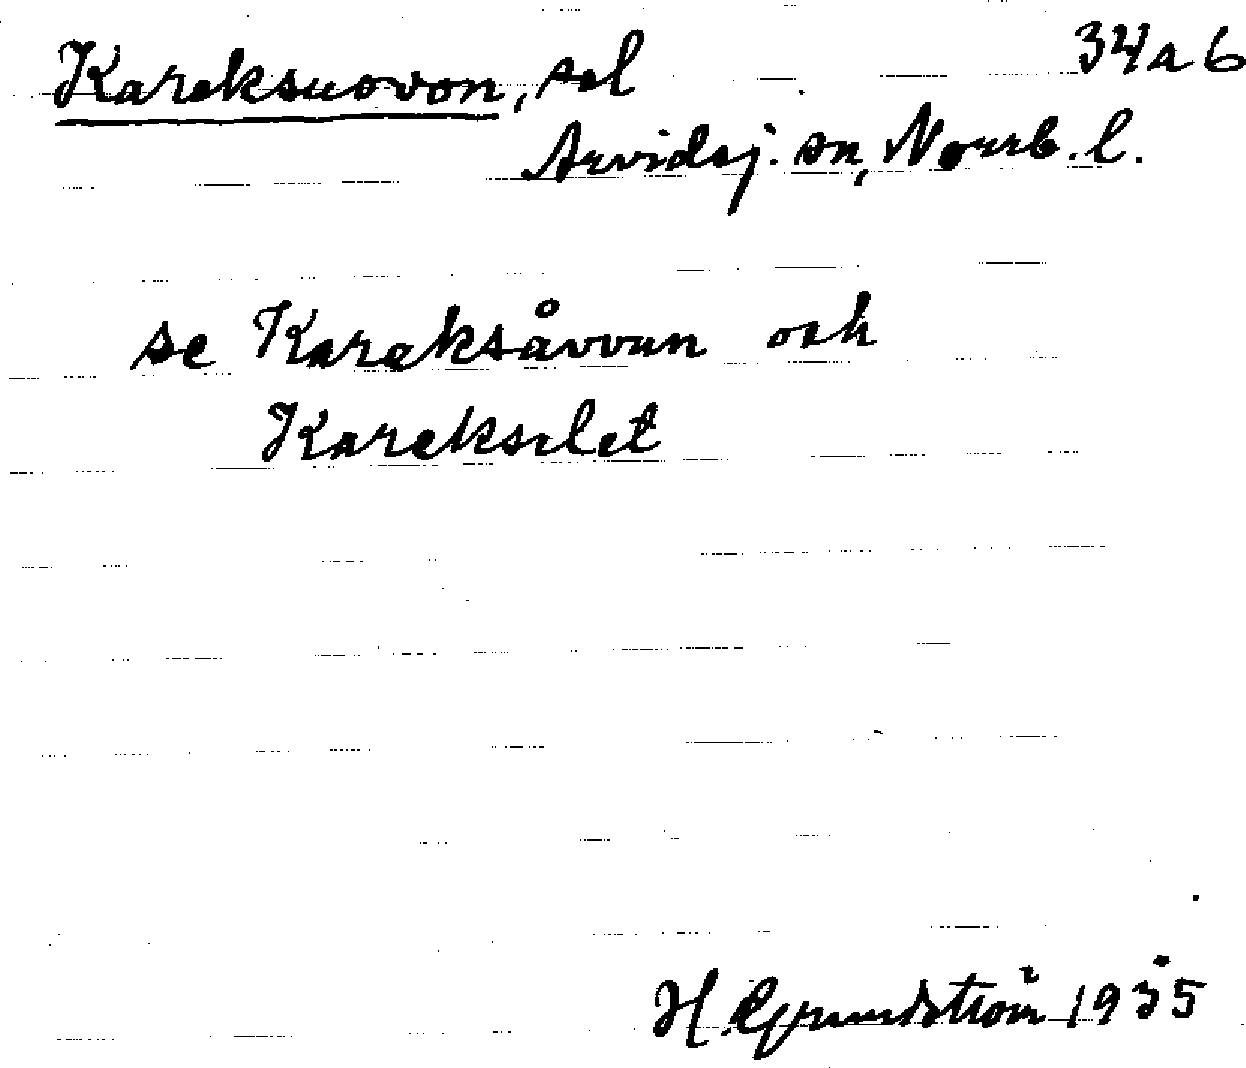 Kareksuovon, sel 34 a 6
Arvidsj. sn, Norrb. l.
se Kareksåvvun och
Karekselet
H. Grundström 1935